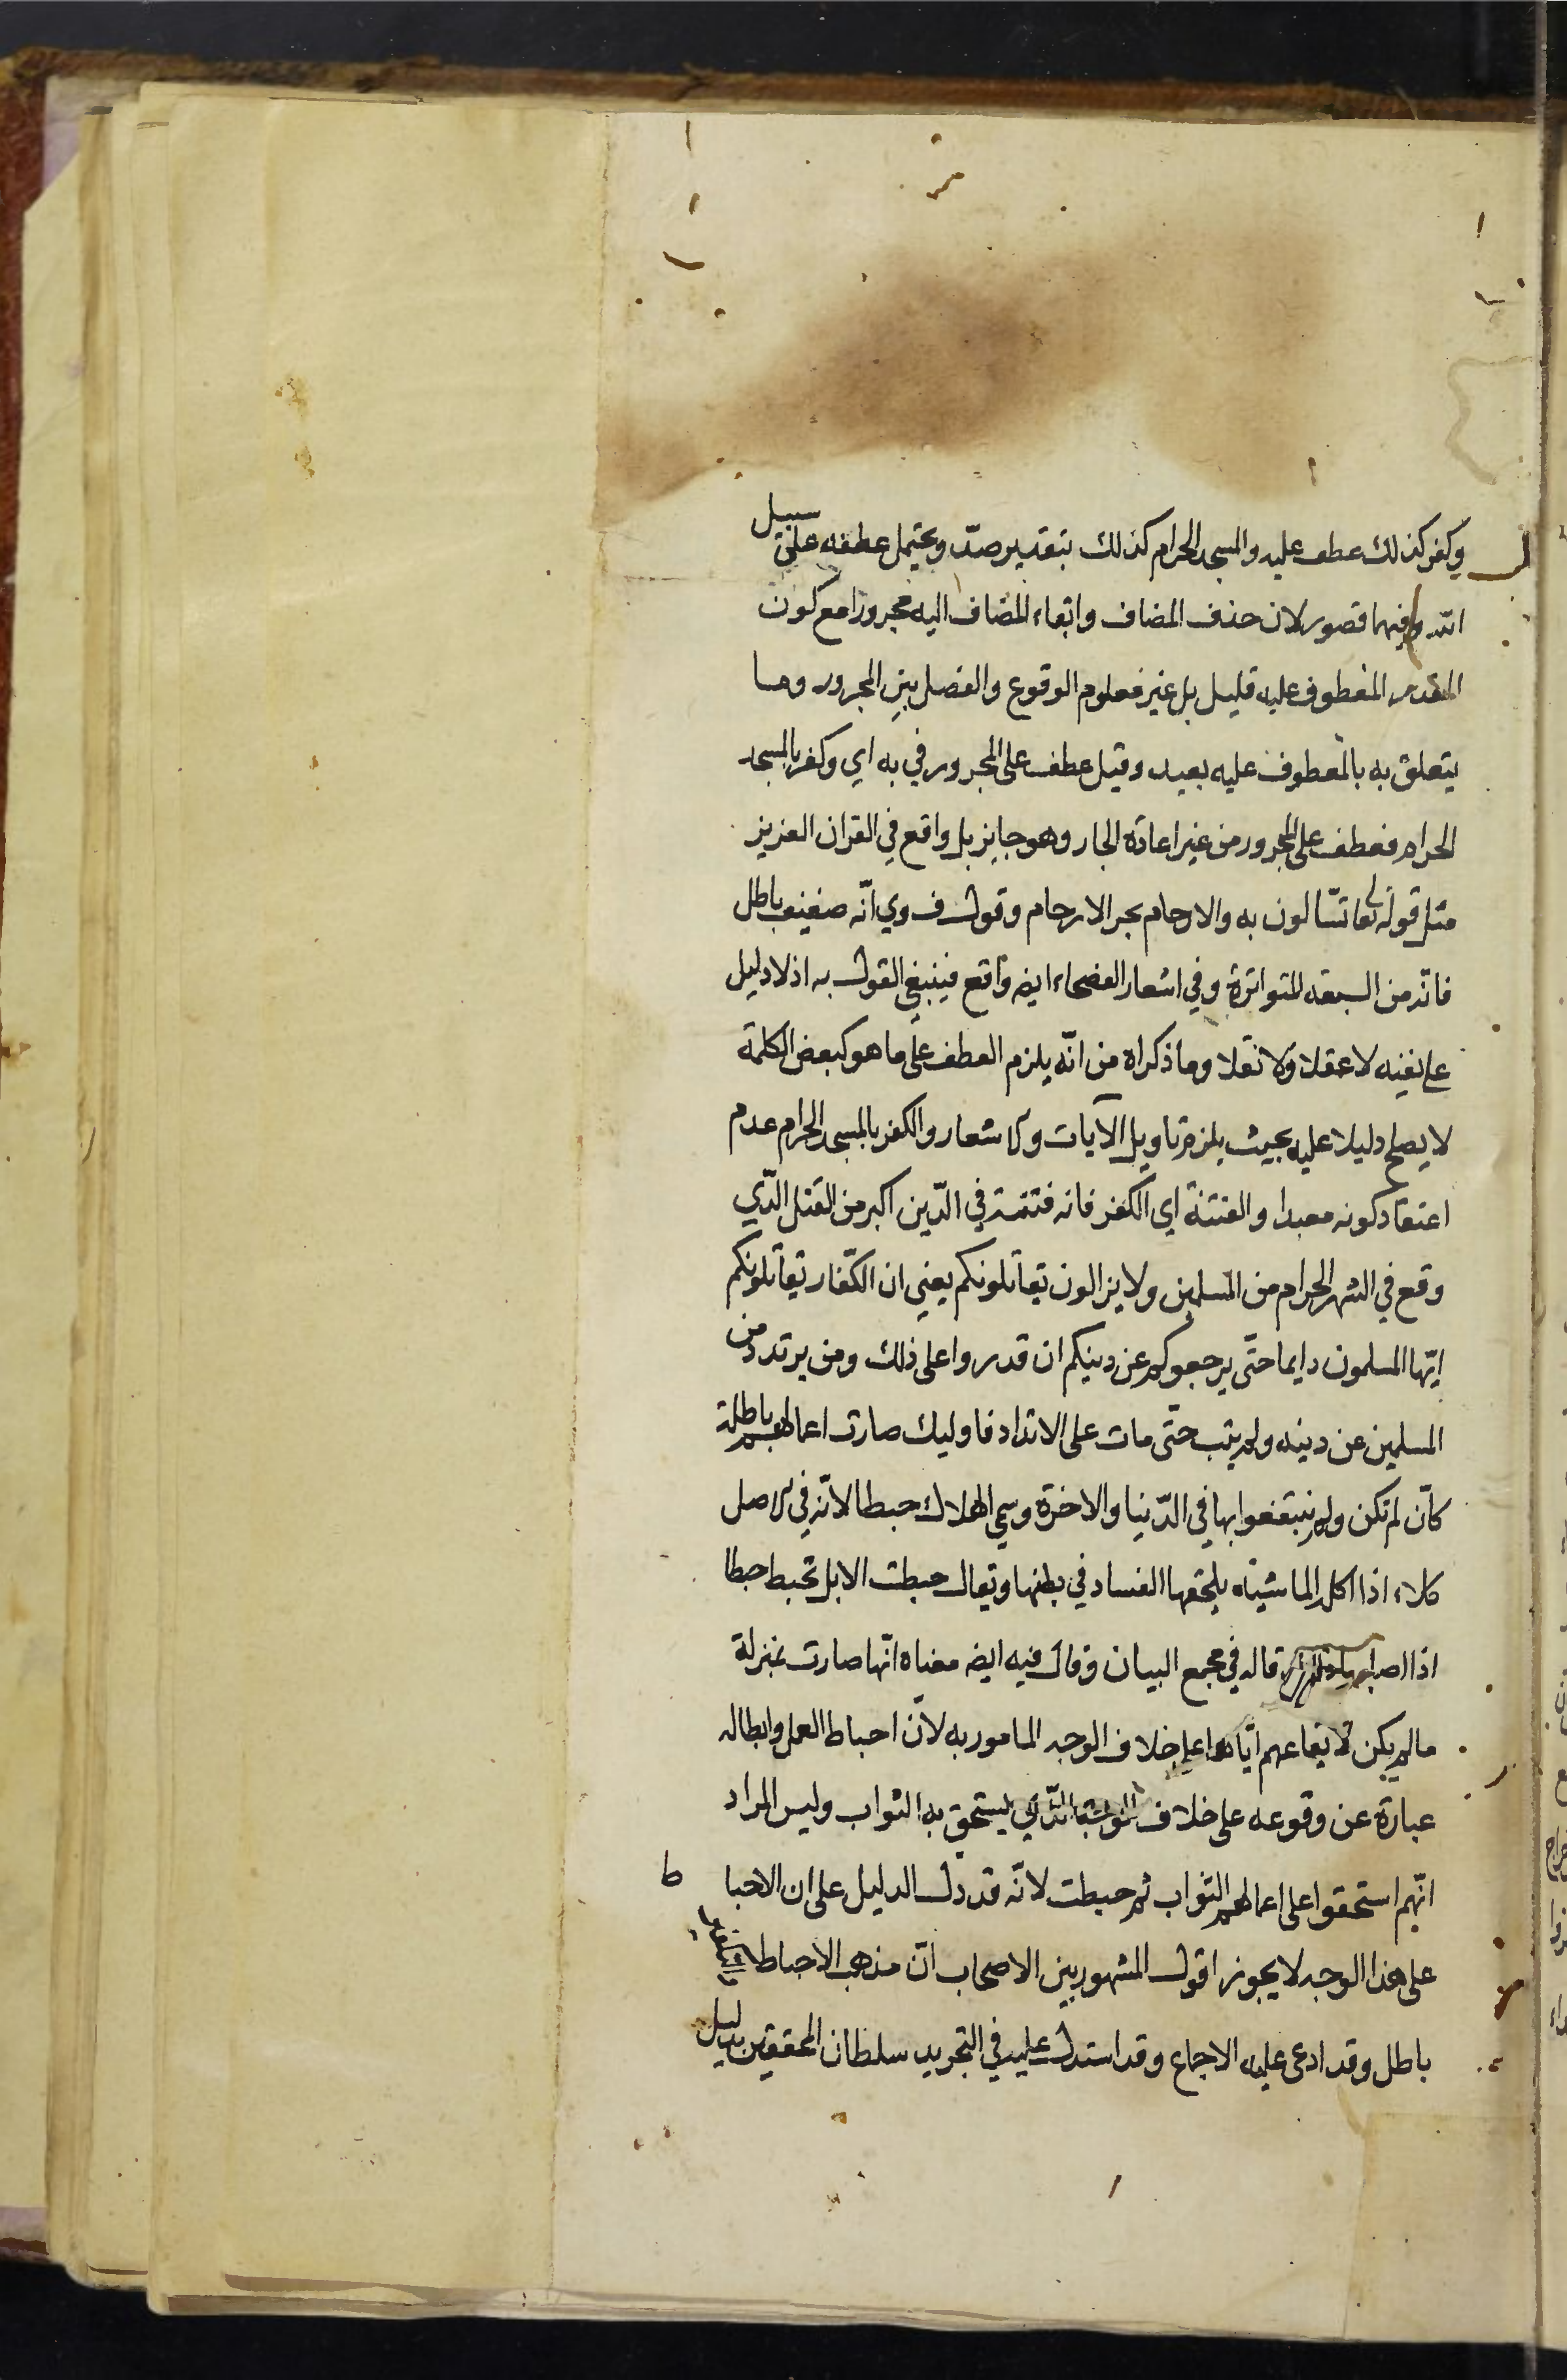 وكفر كذلك عطف عليه والمسجد الحرام كذلك بتقدير صدّ ويحتمل عطفه على سبيل
الله وفيهما قصور لان حذف المضاف وابقاء المضاف اليه مجرورا مع كون
المقدر المعطوف عليه قليل بل غير معلوم الوقوع والفصل بين المجرور وما
يتعلق به بالمعطوف عليه بعيد وقيل عطف على المجرور في به اي وكفر بالمسجد
الحرام فعطف على المجرور من غير اعادة الجار وهو جايز بل واقع في القران العزيز
مثل قوله تعا تسّالون به والارحام بجر الارحام وقول ف وي انّه ضعيف باطل
فانّه من السبعة المتواترة وفي اشعار الفصحاء ايضه واقع فينبغي القول به اذ لا دليل
على نفيه لا عقلا ولا نقلا وما ذكراه من انّه يلزم العطف على ما هو كبعض الكلمة
لا يصلح دليلا عليه بحيث يلزم تاويل الآيات والاشعار والكفر بالمسجد الحرام عدم
اعتقاد كونه معبدا والفتنة اي الكفر فانه فتنة في الدّين اكبر من القتل الّذي
وقع في الشهر الحرام من المسلمين ولا يزالون يقاتلونكم يعني ان الكفّار يقاتلونكم
ايّها المسلمون دايما حتّى يرجعوكم عن دينكم ان قدروا على ذلك ومن يرتدد من
المسلمين عن دينه ولم يتب حتّى مات على الارتداد فاوليك صارت اعمالهم باطلة
كأن لم تكن ولم ينتفعوا بها في الدّنيا والاخرة وسمي الهلاك حبطا لانّه في الاصل
كلاء اذا اكل الماشية يلحقها الفساد في بطنها ويقال حبطت الابل تحبط حبطا
اذا اصابها ذلك قاله في مجمع البيان وقال فيه ايضه معناه انّها صارت بمنزلة
ما لم يكن لايقاعهم ايّاها على خلاف الوجه المامور به لانّ احباط العمل وابطاله
عبارة عن وقوعه على خلاف الوجه الّذي يستحق به الثواب وليس المراد
انّهم استحقوا على اعمالهم الثواب ثم حبطت لانّه قد دل الدليل على ان الاحبا ط
على هذا الوجه لا يجوز اقول المشهور بين الاصحاب انّ مذهب الاحباط
باطل وقد ادعى عليه الاجماع وقد استدل عليه في التجريد سلطان المحققين بدليل